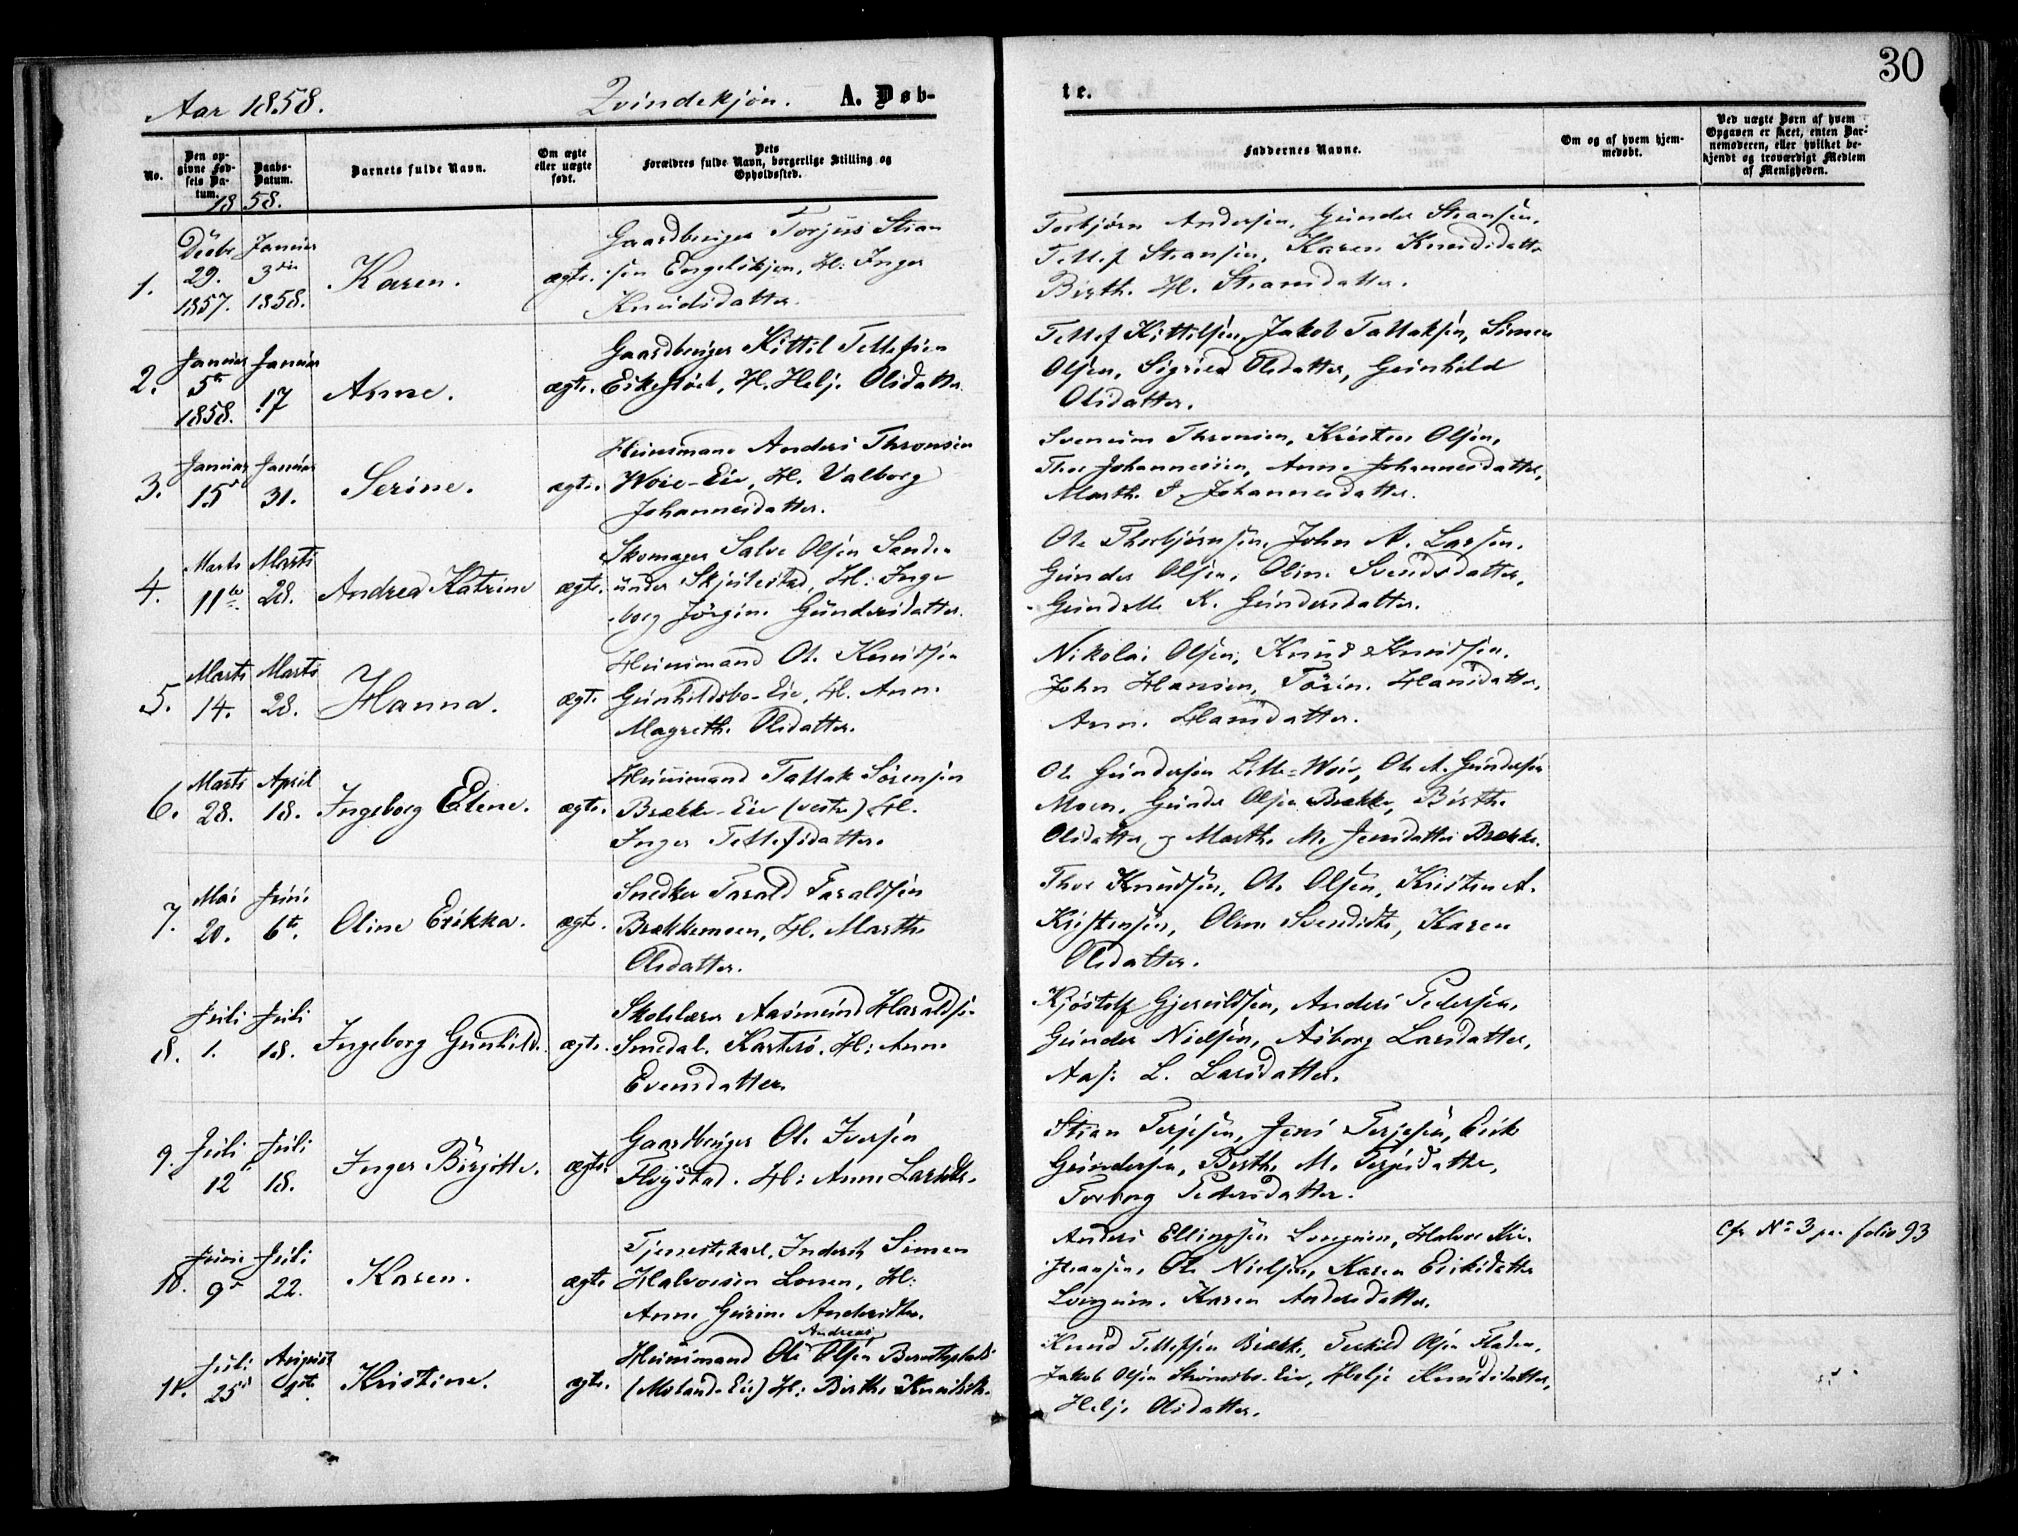 30
Aar 1858. Qvindekjøn. A. Døb-
te.
No.
Den op-
givne Fød-
sels Da-
tum.
Daabs-
Datum.
Barnets fulde Navn.
Om ægte
eller uægte
født.
Dets
Forældres fulde Navn, borgerlige Stilling og
Opholdssted.
Faddernes Navne.
Om og af hvem hjem-
medøbt.
Ved uægte Børn af hvem
Opgaven er skeet, enten Bar-
nemoderen, eller hvilket be-
kjendt og troværdigt Medlem
af Menigheden.
1858.
1.
Decbr
29.
1857.
Januar
3die
1858.
Karen.
ægte.
Gaardbruger Torjus Stian
sen Engelskjøn, H: Inger
Knudsdatter.
Torbjørn Andersen, Gunder Stiansen,
Tellef Stiansen, Karen Knudsdatter
Birthe H. Stiansdatter.
2.
Januar
5te
1858.
Januar
17
Anne.
ægte.
Gaardbruger Kittil Tellefsen
Eikestøet, H. Helje Olsdatter.
Tellef Kittilsen, Jakob Tallaksen, Simen
Olsen, Sigried Olsdatter, Gunhild
Olsdatter.
3.
Januar
15de
Januar
31.
Serine.
ægte.
Huusmand Anders Thronsen
Woie-Eie, H. Valborg
Johannesdatter.
Svenum Thronsen, Kristen Olsen,
Thor Johannessen, Anne Johannesdatter,
Marthe I. Johannesdatter.
4.
Marts
11te
Marts
28.
Andrea Katrine
ægte.
Skomager Salve Olsen Sanden
under Skjulestad, H: Inge
borg Jørgine Gundersdatter.
Ole Thorbjørnsen, John A. Larsen,
Gunder Olsen, Oline Svendsdatter,
Gundelle K. Gundersdatter.
5.
Marts
14.
Marts
28.
Hanna.
ægte.
Huusmand Ole Knudsen
Gunhildsbo-Eie, H. Anne
Magrethe Olsdatter.
Nikolai Olsen, Knud Knudsen,
John Hansen, Torine Hansdatter,
Anne Hansdatter.
6.
Marts
28.
April
18.
Ingeborg Elene.
ægte.
Huusmand Tallak Sørensen
Brække-Eie (vestre) H.
Inger Tellefsdatter.
Ole Gundersen Lille-Woie, Ole A. Gundersen
Moen, Gunder Olsen Brække, Birthe
Olsdatter og Marthe M. Jensdatter Brække.
7.
Mai
20.
Juni
6te.
Oline Erikka.
ægte.
Snedker Tarald Taraldsen
Brækkemoen, H. Marthe
Olsdatter.
Thor Knudsen, Ole Olsen, Kristen A.
Kristensen, Oline Svendsdtr, Karen
Olsdatter.
8.
Juli
1.
Juli
18.
Ingeborg Gunhild.
ægte.
Skolelærer Aasmund Haraldsen
Smedal. Karterø. H: Anne
Evensdatter.
Kjøstolf Gjeruldsen, Anders Pedersen,
Gunder Nielsen, Asborg Larsdatter,
Aase L. Larsdatter.
9.
Juli
12
Juli
18.
Inger Birgitte.
ægte.
Gaardbruger Ole Iversen
Fløystad. H: Anne Larsdtr.
Stian Terjesen, Jens Terjesen, Erik
Gundersen, Berthe M. Terjesdatter,
Torborg Pedersdatter.
10.
Juni
9de
Juli
22.
Karen.
ægte
Tjenestekarl, Inderst Simen
Halvorsen Lonen, H:
Anne Gurine Andersdtr.
Anders Ellingsen Longum, Halvor Kri-
stiansen, Ole Nielsen, Karen Eriksdatter
Longum. Karen Andersdatter.
Cfr No 3 pa. folio 93
11.
Juli
25de
August
1ste.
Kristine.
ægte.
Andreas
Huusmand Ole Olsen Berntsplads
(Molands Eie) H: Birthe Knudsdtr.
Knud Tellefsen Brække, Terkild Olsen Fladen,
Jakob Olsen Strømsbo-Eie, Helje Knudsdatter,
Helje Olsdatter.